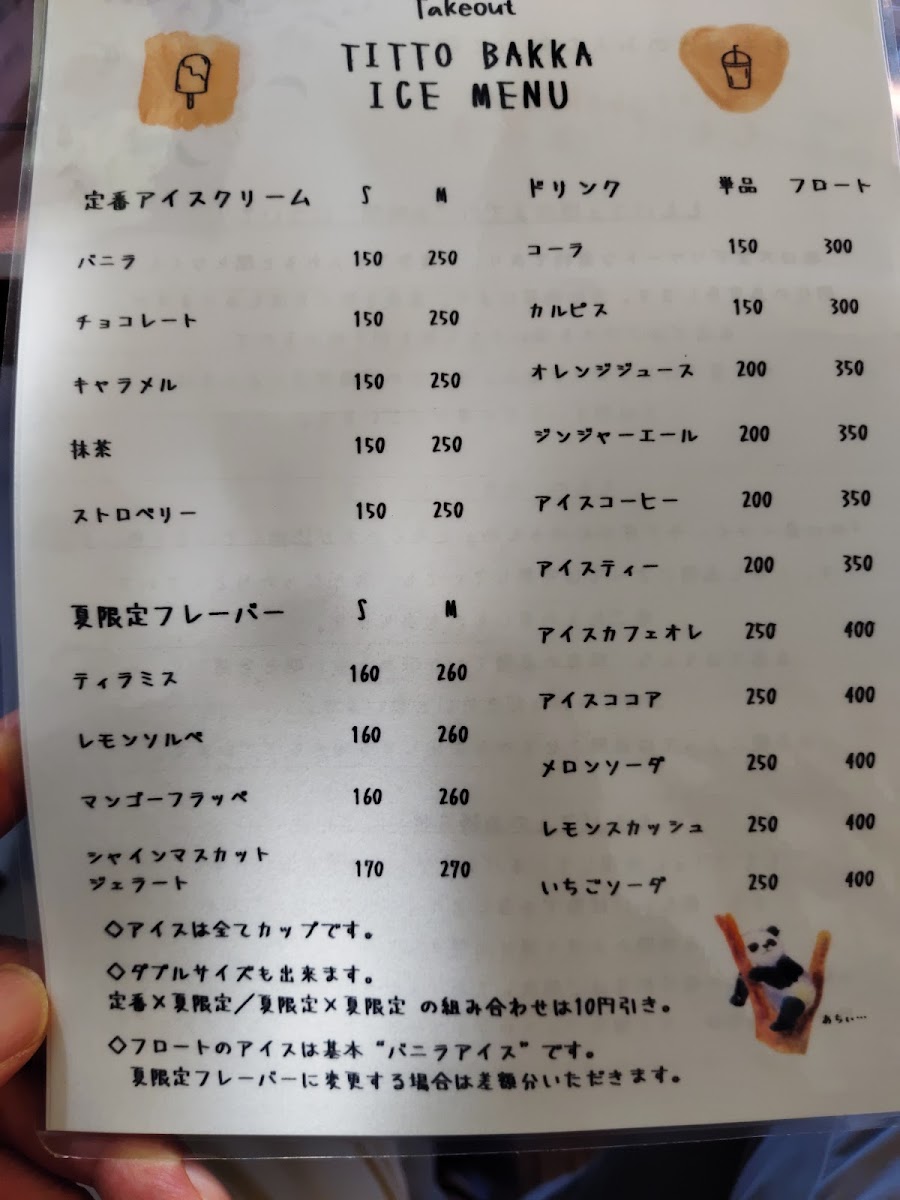 Takeout
TITTO BAKKA
ICE MENU
定番アイスクリーム S M
バニラ 150 250
チョコレート 150 250
キャラメル 150 250
抹茶 150 250
ストロベリー 150 250
夏限定フレーバー S M
ティラミス 160 260
レモンソルベ 160 260
マンゴーフラッペ 160 260
シャインマスカット
ジェラート 170 270
ドリンク 単品 フロート
コーラ 150 300
カルピス 150 300
オレンジジュース 200 350
ジンジャーエール 200 350
アイスコーヒー 200 350
アイスティー 200 350
アイスカフェオレ 250 400
アイスココア 250 400
メロンソーダ 250 400
レモンスカッシュ 250 400
いちごソーダ 250 400
◇アイスは全てカップです。
◇ダブルサイズも出来ます。
定番×夏限定/夏限定×夏限定 の組み合わせは10円引き。
◇フロートのアイスは基本“バニラアイス”です。
夏限定フレーバーに変更する場合は差額分いただきます。
あちぃ…